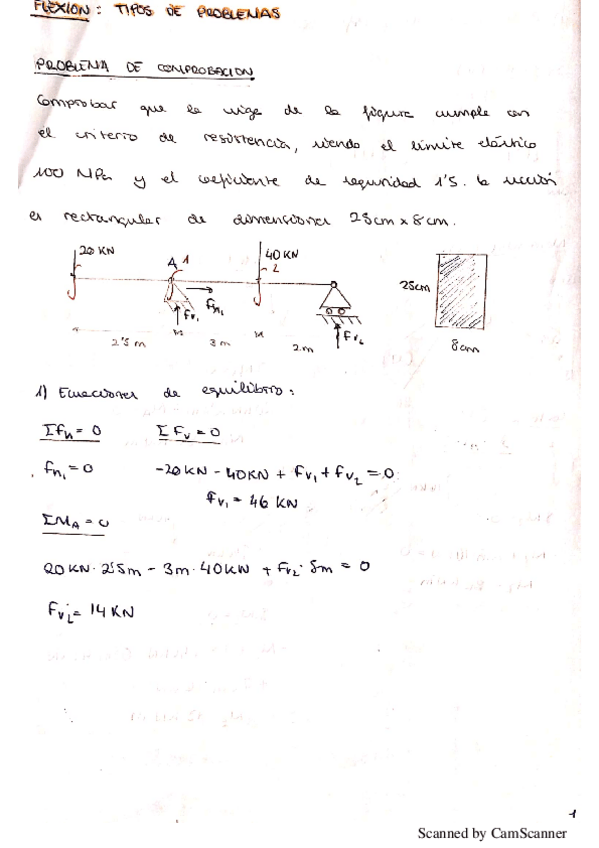 FLEXION: TIPOS DE PROBLEMAS
PROBLEMA DE COMPROBACION
Comprobar que la viga de la figura cumple con
el criterio de resistencia, siendo el límite elástico
100 MPa y el coeficiente de seguridad 1'5. la sección
es rectangular de dimensiones 25cm x 8cm.
20 KN
A 1
40 KN
2
Fv1
FH1
Fv2
2'5 m
3m
2m
25cm
8cm
1) Ecuaciones de equilibrio:
ΣFH = 0 ΣFV = 0
FH1 = 0 -20KN - 40KN + FV1 + FV2 = 0
FV1 = 46 KN
ΣMA = 0
20KN · 2'5m - 3m · 40KN + FV2 · 5m = 0
FV2 = 14 KN
1
Scanned by CamScanner